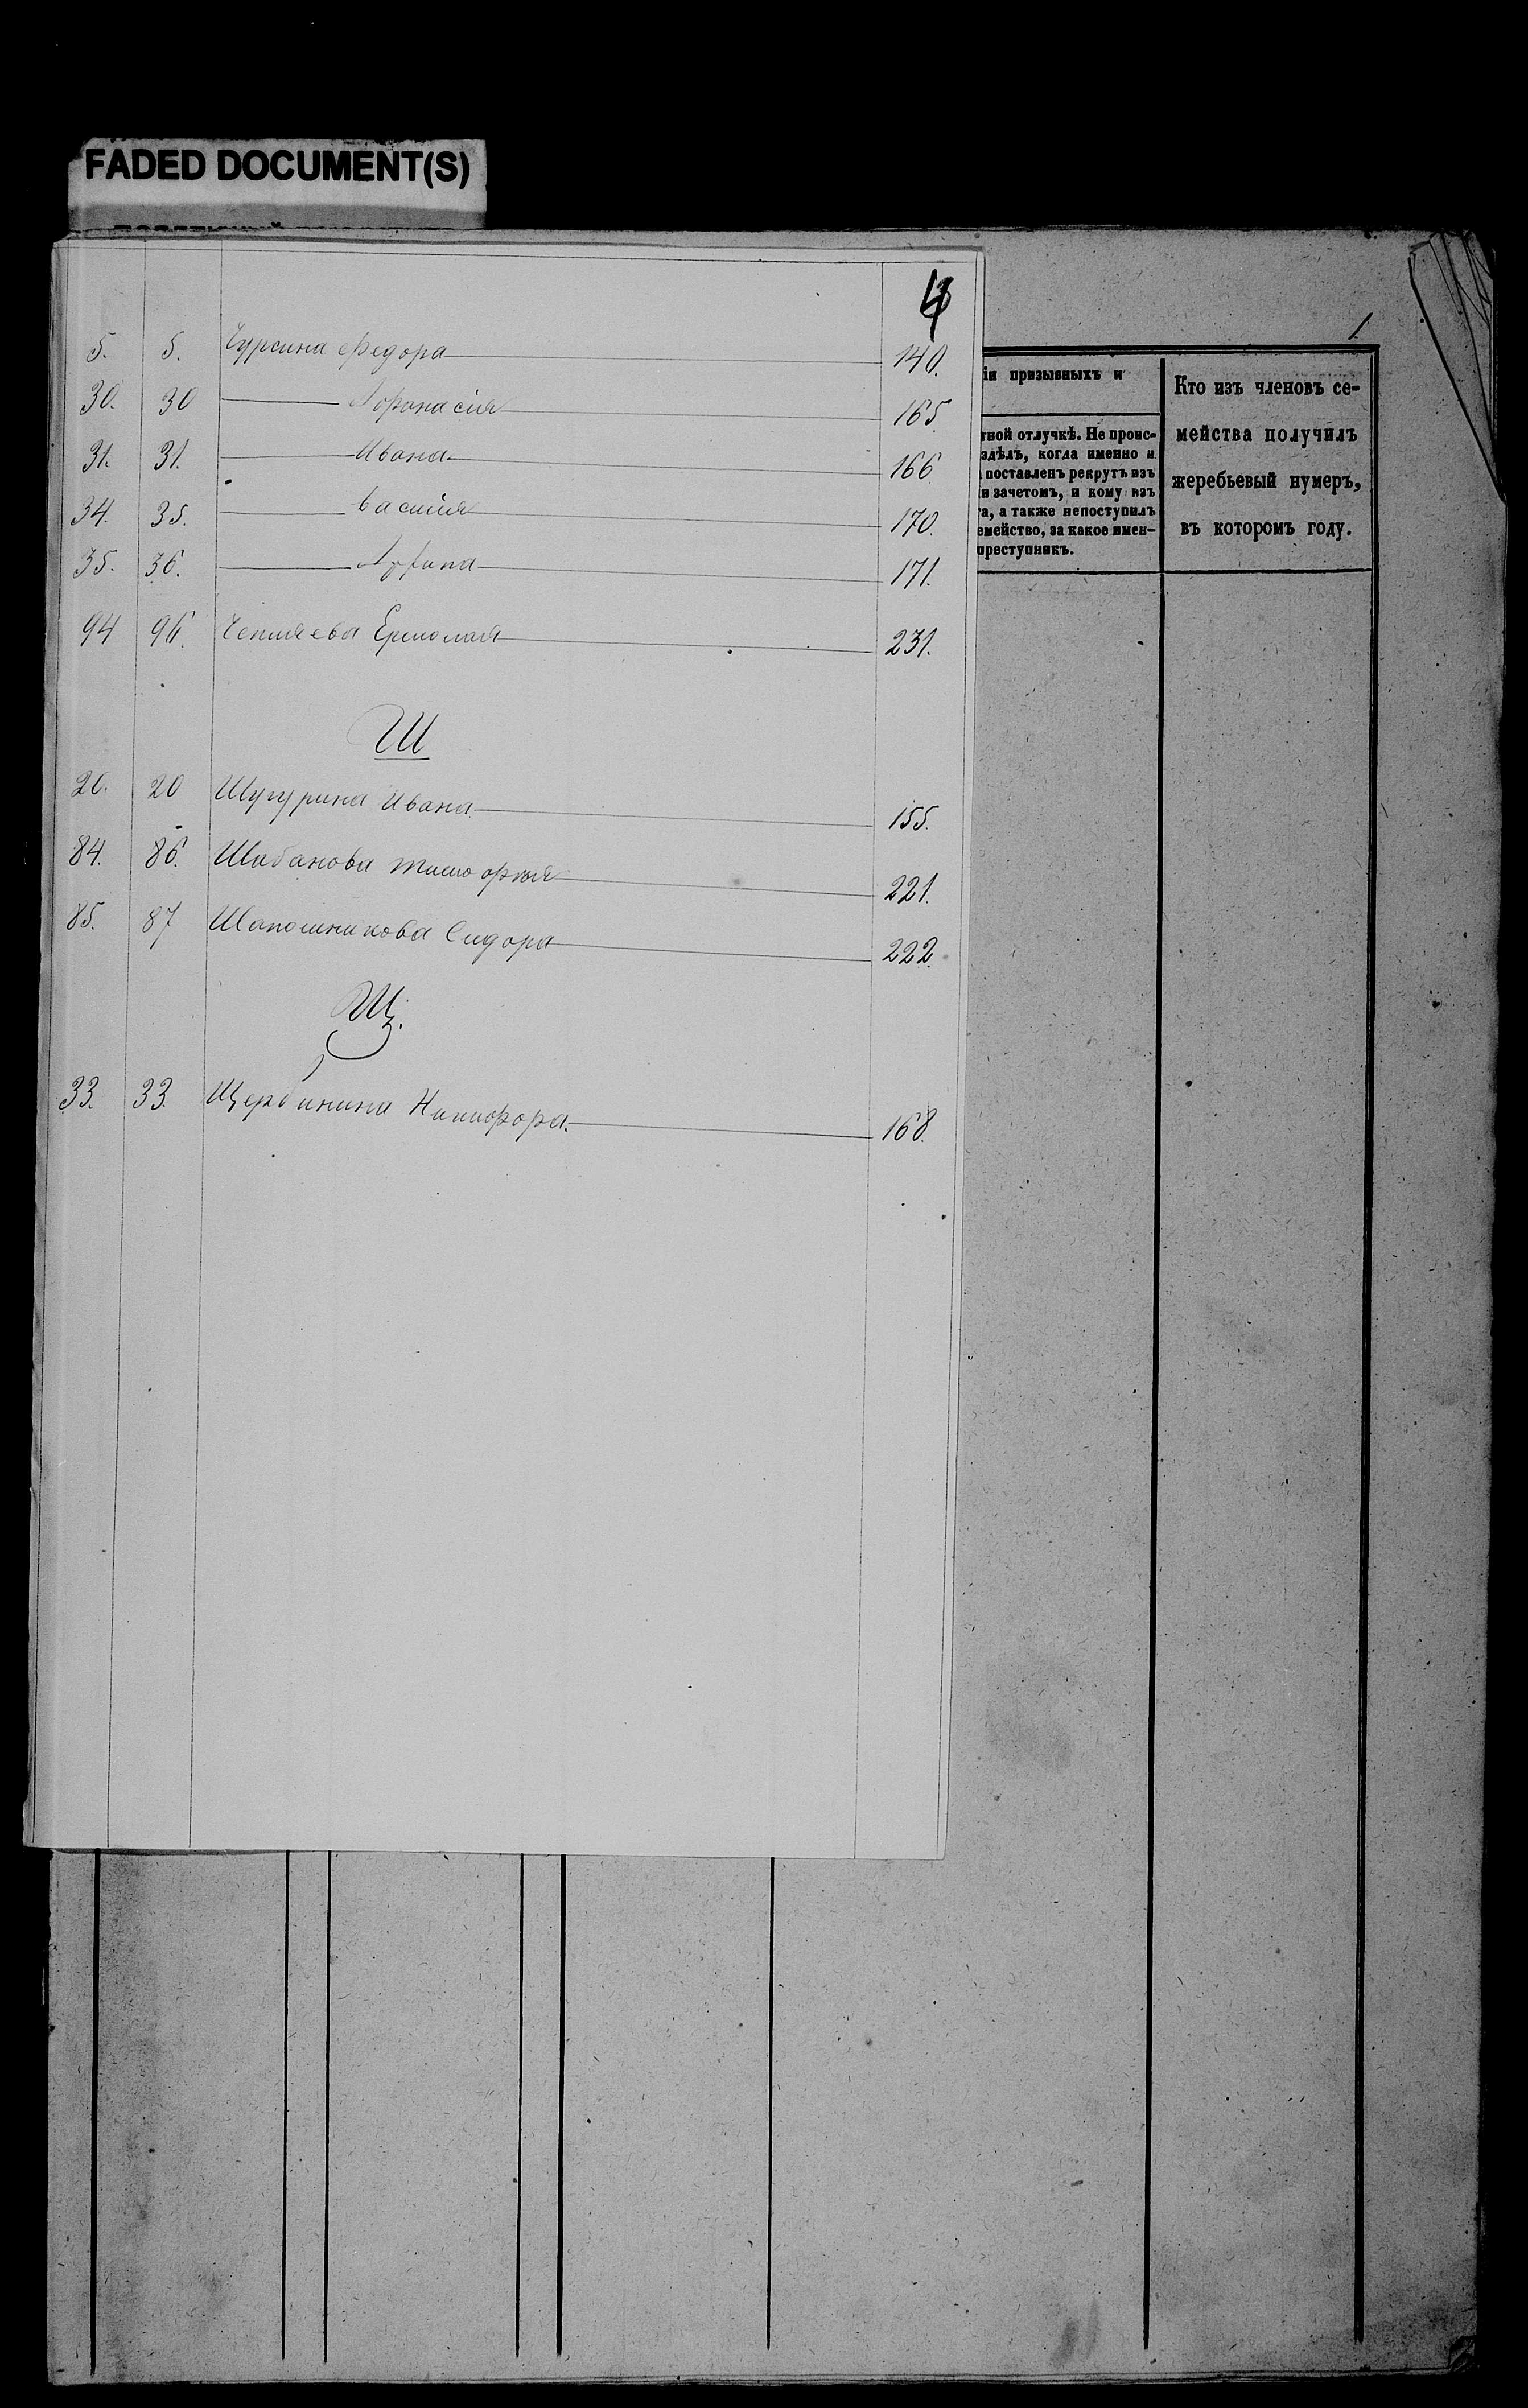 FADED DOCUMENT(S)
4
5. 5. Чурсина Федора 140.
30. 30 Афонасія 165.
31. 31. Ивана 166.
34. 35. Василія 170.
35. 36. 171.
94 96. Ермолая 231.
Ш
20. 20 Шугурина Ивана 155.
84. 86. Шабанова Тимофея 221.
85. 87 Шапошникова Сидора 222.
Щ.
33. 33. Щербинина Никифора. 168.
1
іи призывныхъ и
тной отлучкѣ. Не проис-
здѣлъ, когда именно и
поставленъ рекрутъ изъ
и зачетомъ, и кому изъ
га, а также непоступилъ
емейство, за какое имен-
преступникъ.
Кто изъ членовъ се-
мейства получилъ
жеребьевый нумеръ,
въ которомъ году.